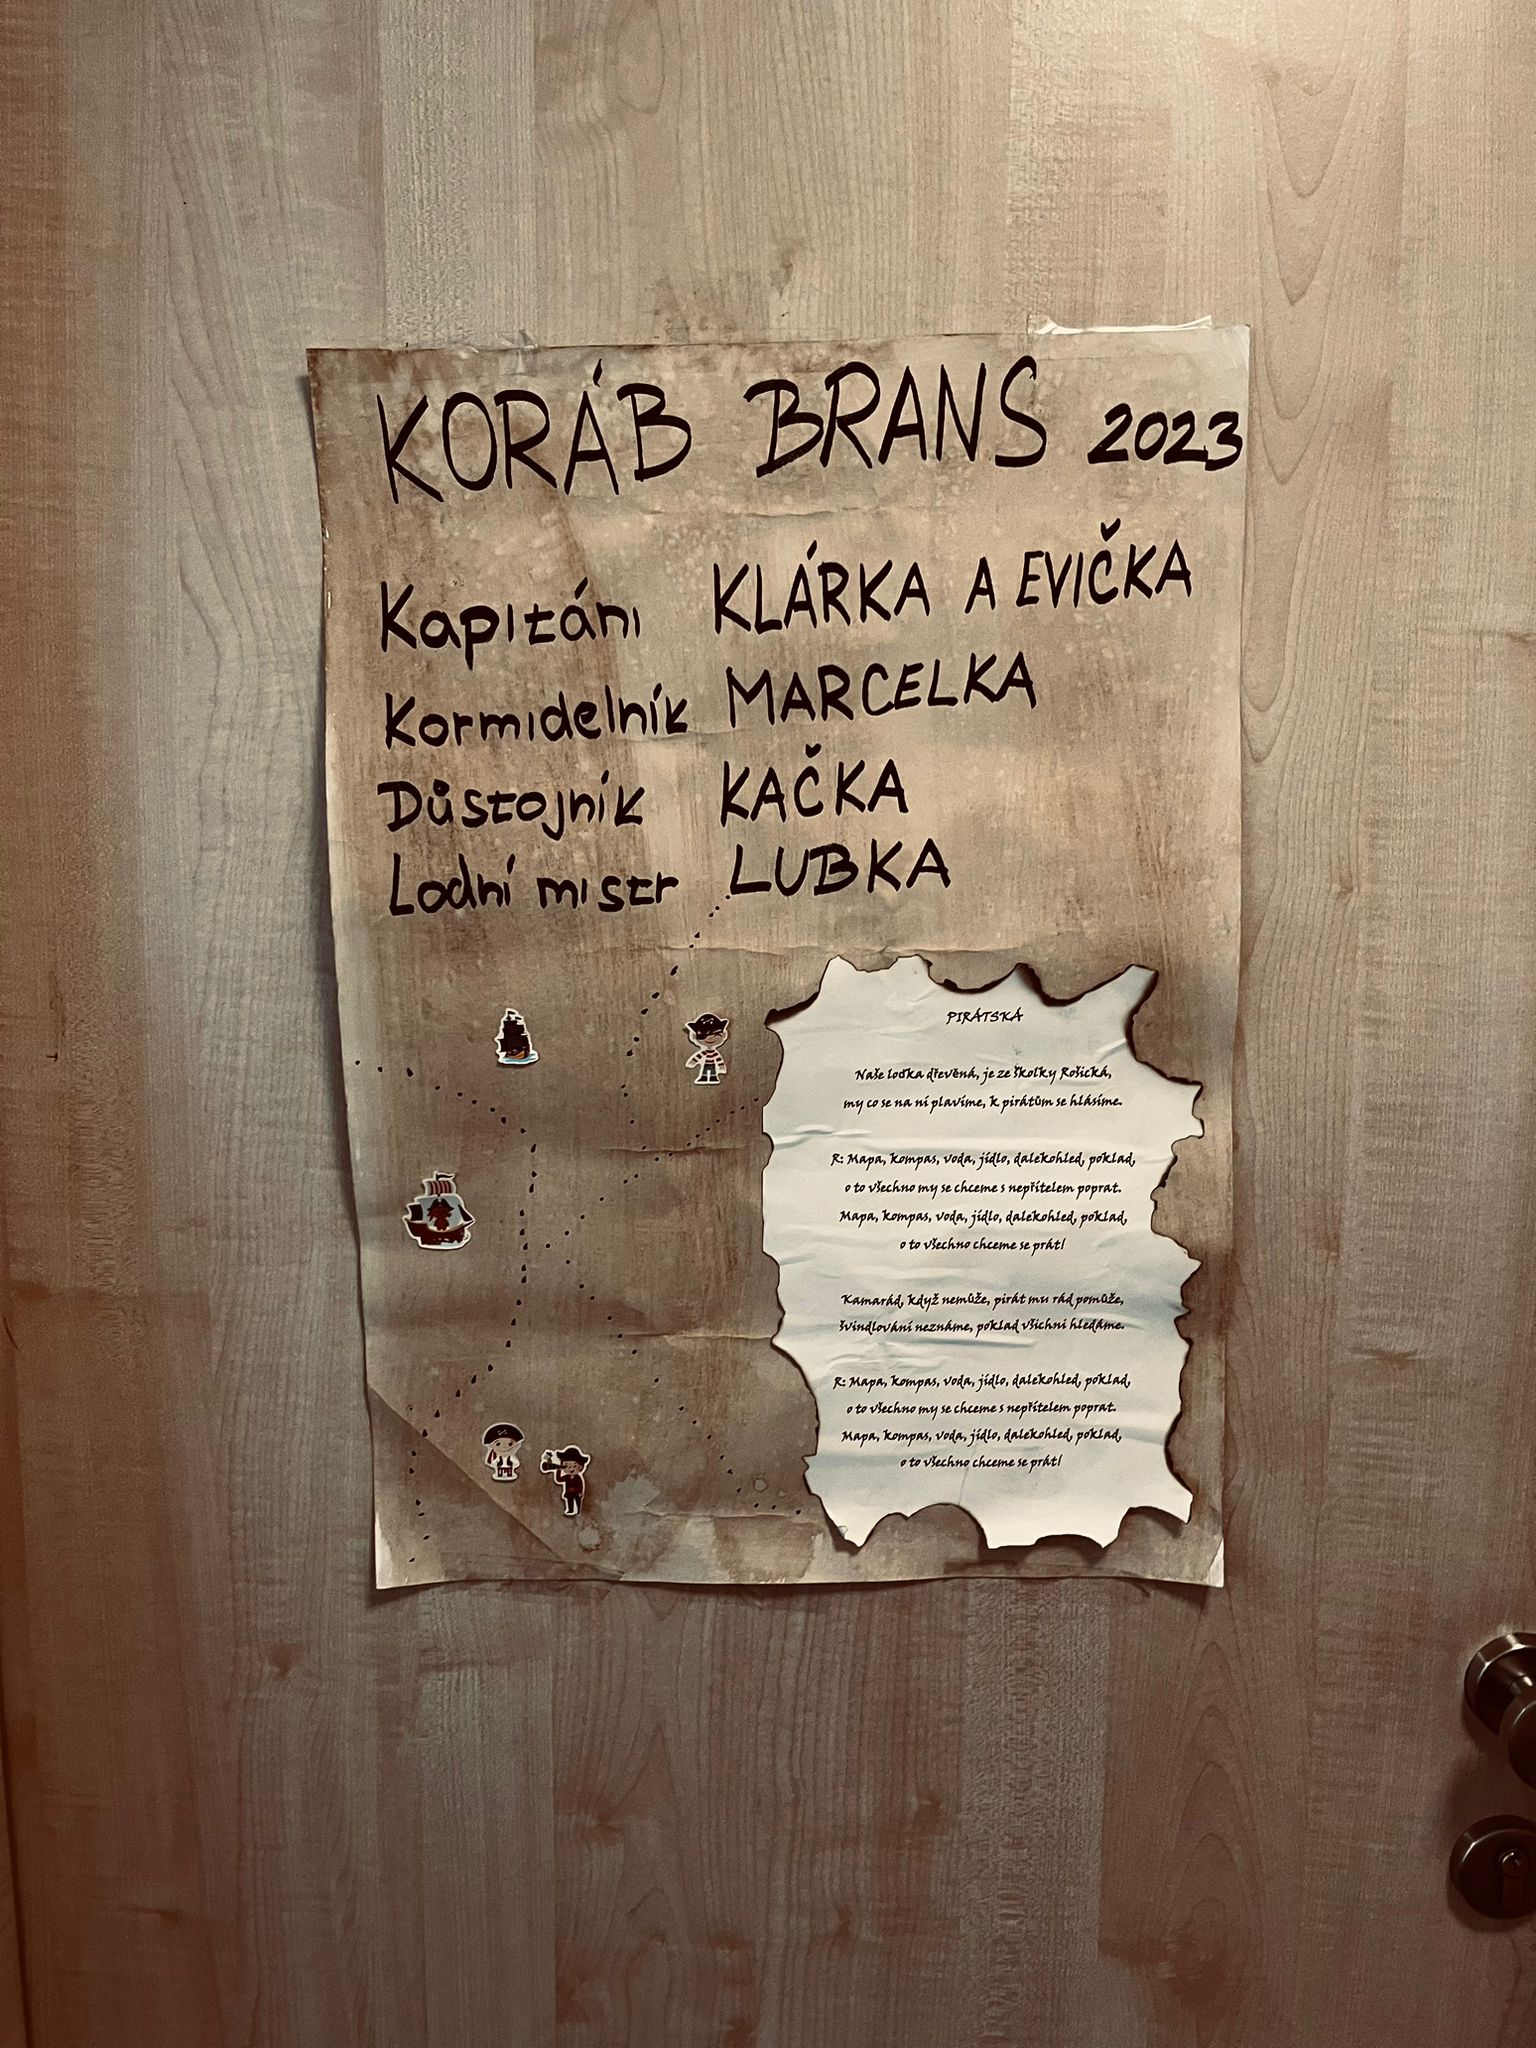 KORÁB BRANS 2023
Kapitáni KLÁRKA A EVIČKA
Kormidelník MARCELKA
Důstojník KAČKA
Lodní mistr LUBKA
PIRÁTSKÁ
Naše loďka dřevěná, je ze školky Rošická,
my co se na ní plavíme, k pirátům se hlásíme.
R: Mapa, kompas, voda, jídlo, dalekohled, poklad,
o to všechno my se chceme s nepřítelem poprat.
Mapa, kompas, voda, jídlo, dalekohled, poklad,
o to všechno chceme se prát!
Kamarád, když nemůže, pirát mu rád pomůže,
švindlování neznáme, poklad všichni hledáme.
R: Mapa, kompas, voda, jídlo, dalekohled, poklad,
o to všechno my se chceme s nepřítelem poprat.
Mapa, kompas, voda, jídlo, dalekohled, poklad,
o to všechno chceme se prát!